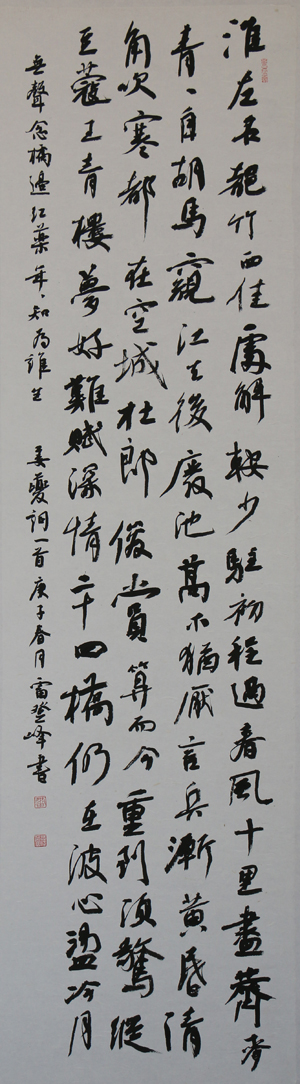 淮左名都竹西佳處解鞍少駐初程過春風十里盡薺麥
青〻自胡馬窺江去後廢池喬木猶厭言兵漸黃昏清
角吹寒都在空城杜郎俊賞算而今重到須驚縱
豆蔻工青樓夢好難賦深情二十四橋仍在波心盪冷月
無聲念橋邊紅藥年〻知為誰生 姜夔詞一首庚子春月雷登峰書